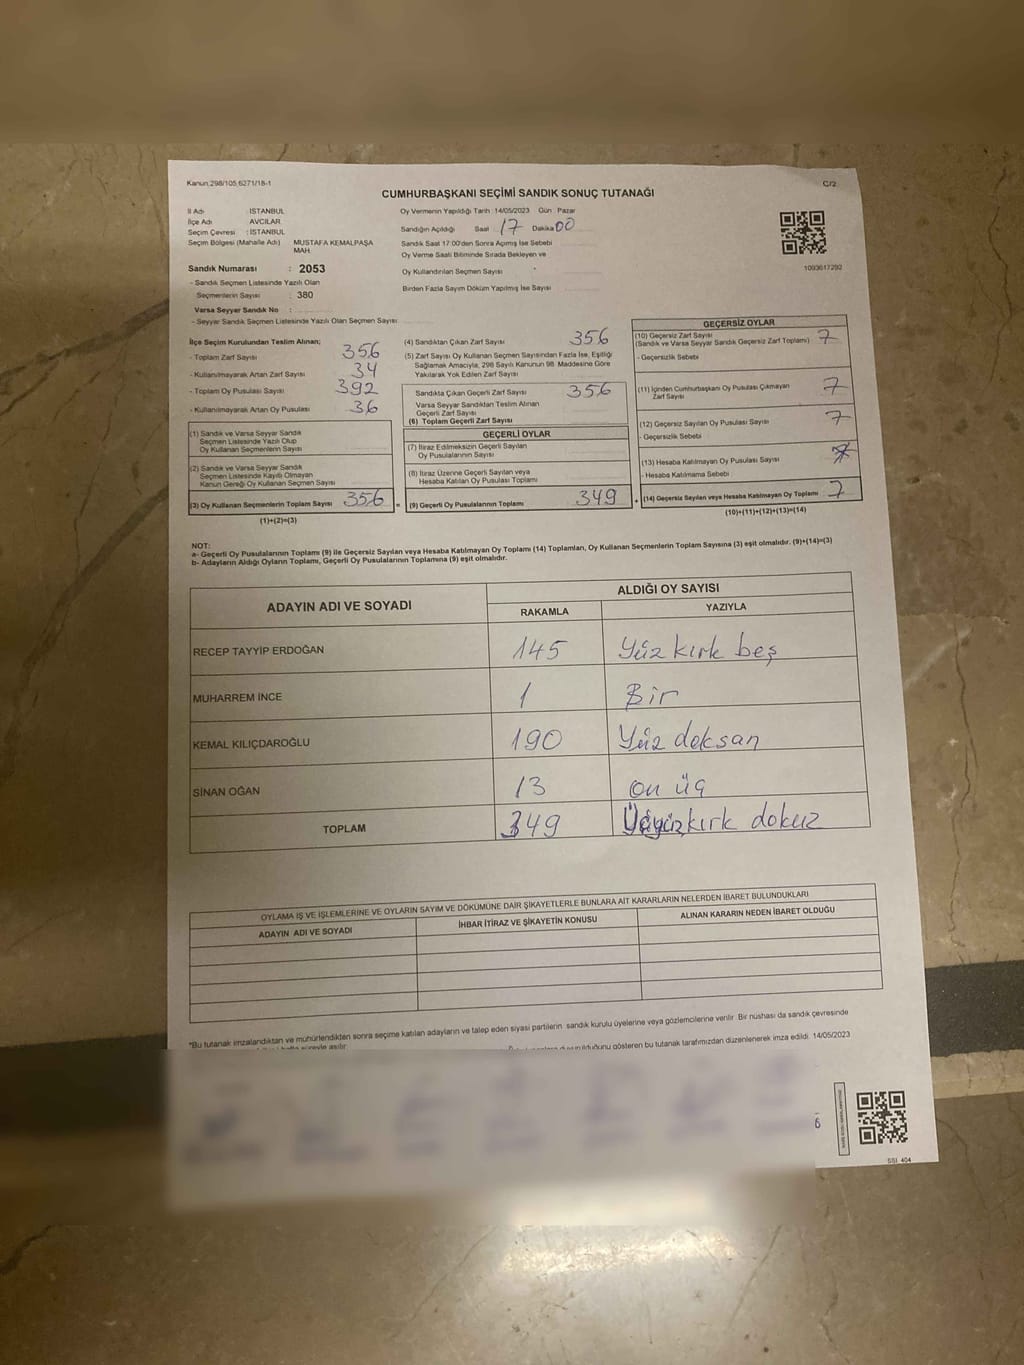 Kanun:298/105,6271/18-1
C/2
CUMHURBAŞKANI SEÇİMİ SANDIK SONUÇ TUTANAĞI
İl Adı : İSTANBUL
İlçe Adı AVCILAR
Seçim Çevresi : İSTANBUL
Seçim Bölgesi (Mahalle Adı) MUSTAFA KEMALPAŞA MAH.
Sandık Numarası : 2053
- Sandık Seçmen Listesinde Yazılı Olan
Seçmenlerin Sayısı : 380
Varsa Seyyar Sandık No :
- Seyyar Sandık Seçmen Listesinde Yazılı Olan Seçmen Sayısı
Oy Vermenin Yapıldığı Tarih :14/05/2023 Gün Pazar
Sandığın Açıldığı Saat 17 Dakika 00
Sandık Saat 17:00'den Sonra Açımış İse Sebebi
Oy Verme Saati Bitiminde Sırada Bekleyen ve
Oy Kullandırılan Seçmen Sayısı
Birden Fazla Sayım Döküm Yapılmış İse Sayısı
1093617292
İlçe Seçim Kurulundan Teslim Alınan;
- Toplam Zarf Sayısı 356
- Kullanılmayarak Artan Zarf Sayısı 34
- Toplam Oy Pusulası Sayısı 392
- Kullanılmayarak Artan Oy Pusulası 36
(1) Sandık ve Varsa Seyyar Sandık
Seçmen Listesinde Yazılı Olup
Oy Kullanan Seçmenlerin Sayısı
(2) Sandık ve Varsa Seyyar Sandık
Seçmen Listesinde Kayıtlı Olmayan
Kanun Gereği Oy Kullanan Seçmen Sayısı
(3) Oy Kullanan Seçmenlerin Toplam Sayısı 356 =
(1)+(2)=(3)
(4) Sandıktan Çıkan Zarf Sayısı 356
(5) Zarf Sayısı Oy Kullanan Seçmen Sayısından Fazla İse, Eşitliği
Sağlamak Amacıyla, 298 Sayılı Kanunun 98. Maddesine Göre
Yakılarak Yok Edilen Zarf Sayısı
Sandıkta Çıkan Geçerli Zarf Sayısı 356
Varsa Seyyar Sandıktan Teslim Alınan
Geçerli Zarf Sayısı
(6) Toplam Geçerli Zarf Sayısı
GEÇERLİ OYLAR
(7) İtiraz Edilmeksizin Geçerli Sayılan
Oy Pusulalarının Sayısı
(8) İtiraz Üzerine Geçerli Sayılan veya
Hesaba Katılan Oy Pusulası Toplamı
(9) Geçerli Oy Pusulalarının Toplamı 349 +
GEÇERSİZ OYLAR
(10) Geçersiz Zarf Sayısı
(Sandık ve Varsa Seyyar Sandık Geçersiz Zarf Toplamı) 7
- Geçersizlik Sebebi
(11) İçinden Cumhurbaşkanı Oy Pusulası Çıkmayan
Zarf Sayısı 7
(12) Geçersiz Sayılan Oy Pusulası Sayısı 7
- Geçersizlik Sebebi
(13) Hesaba Katılmayan Oy Pusulası Sayısı
- Hesaba Katılmama Sebebi
(14) Geçersiz Sayılan veya Hesaba Katılmayan Oy Toplamı 7
(10)+(11)+(12)+(13)=(14)
NOT:
a- Geçerli Oy Pusulalarının Toplamı (9) ile Geçersiz Sayılan veya Hesaba Katılmayan Oy Toplamı (14) Toplamları, Oy Kullanan Seçmenlerin Toplam Sayısına (3) eşit olmalıdır. (9)+(14)=(3)
b- Adayların Aldığı Oyların Toplamı, Geçerli Oy Pusulalarının Toplamına (9) eşit olmalıdır.
ADAYIN ADI VE SOYADI ALDIĞI OY SAYISI
RAKAMLA YAZIYLA
RECEP TAYYİP ERDOĞAN 145 Yüz kırk beş
MUHARREM İNCE 1 Bir
KEMAL KILIÇDAROĞLU 190 Yüz doksan
SİNAN OĞAN 13 on üç
TOPLAM 349 Üçyüz kırk dokuz
OYLAMA İŞ VE İŞLEMLERİNE VE OYLARIN SAYIM VE DÖKÜMÜNE DAİR ŞİKAYETLERLE BUNLARA AİT KARARLARIN NELERDEN İBARET BULUNDUKLARI
ADAYIN ADI VE SOYADI İHBAR İTİRAZ VE ŞİKAYETİN KONUSU ALINAN KARARIN NEDEN İBARET OLDUĞU
*Bu tutanak imzalandıktan ve mühürlendikten sonra seçime katılan adayların ve talep eden siyasi partilerin sandık kurulu üyelerine veya gözlemcilerine verilir. Bir nüshası da sandık çevresinde
gösteren bu tutanak tarafımızdan düzenlenerek imza edildi. 14/05/2023
SSİ 404